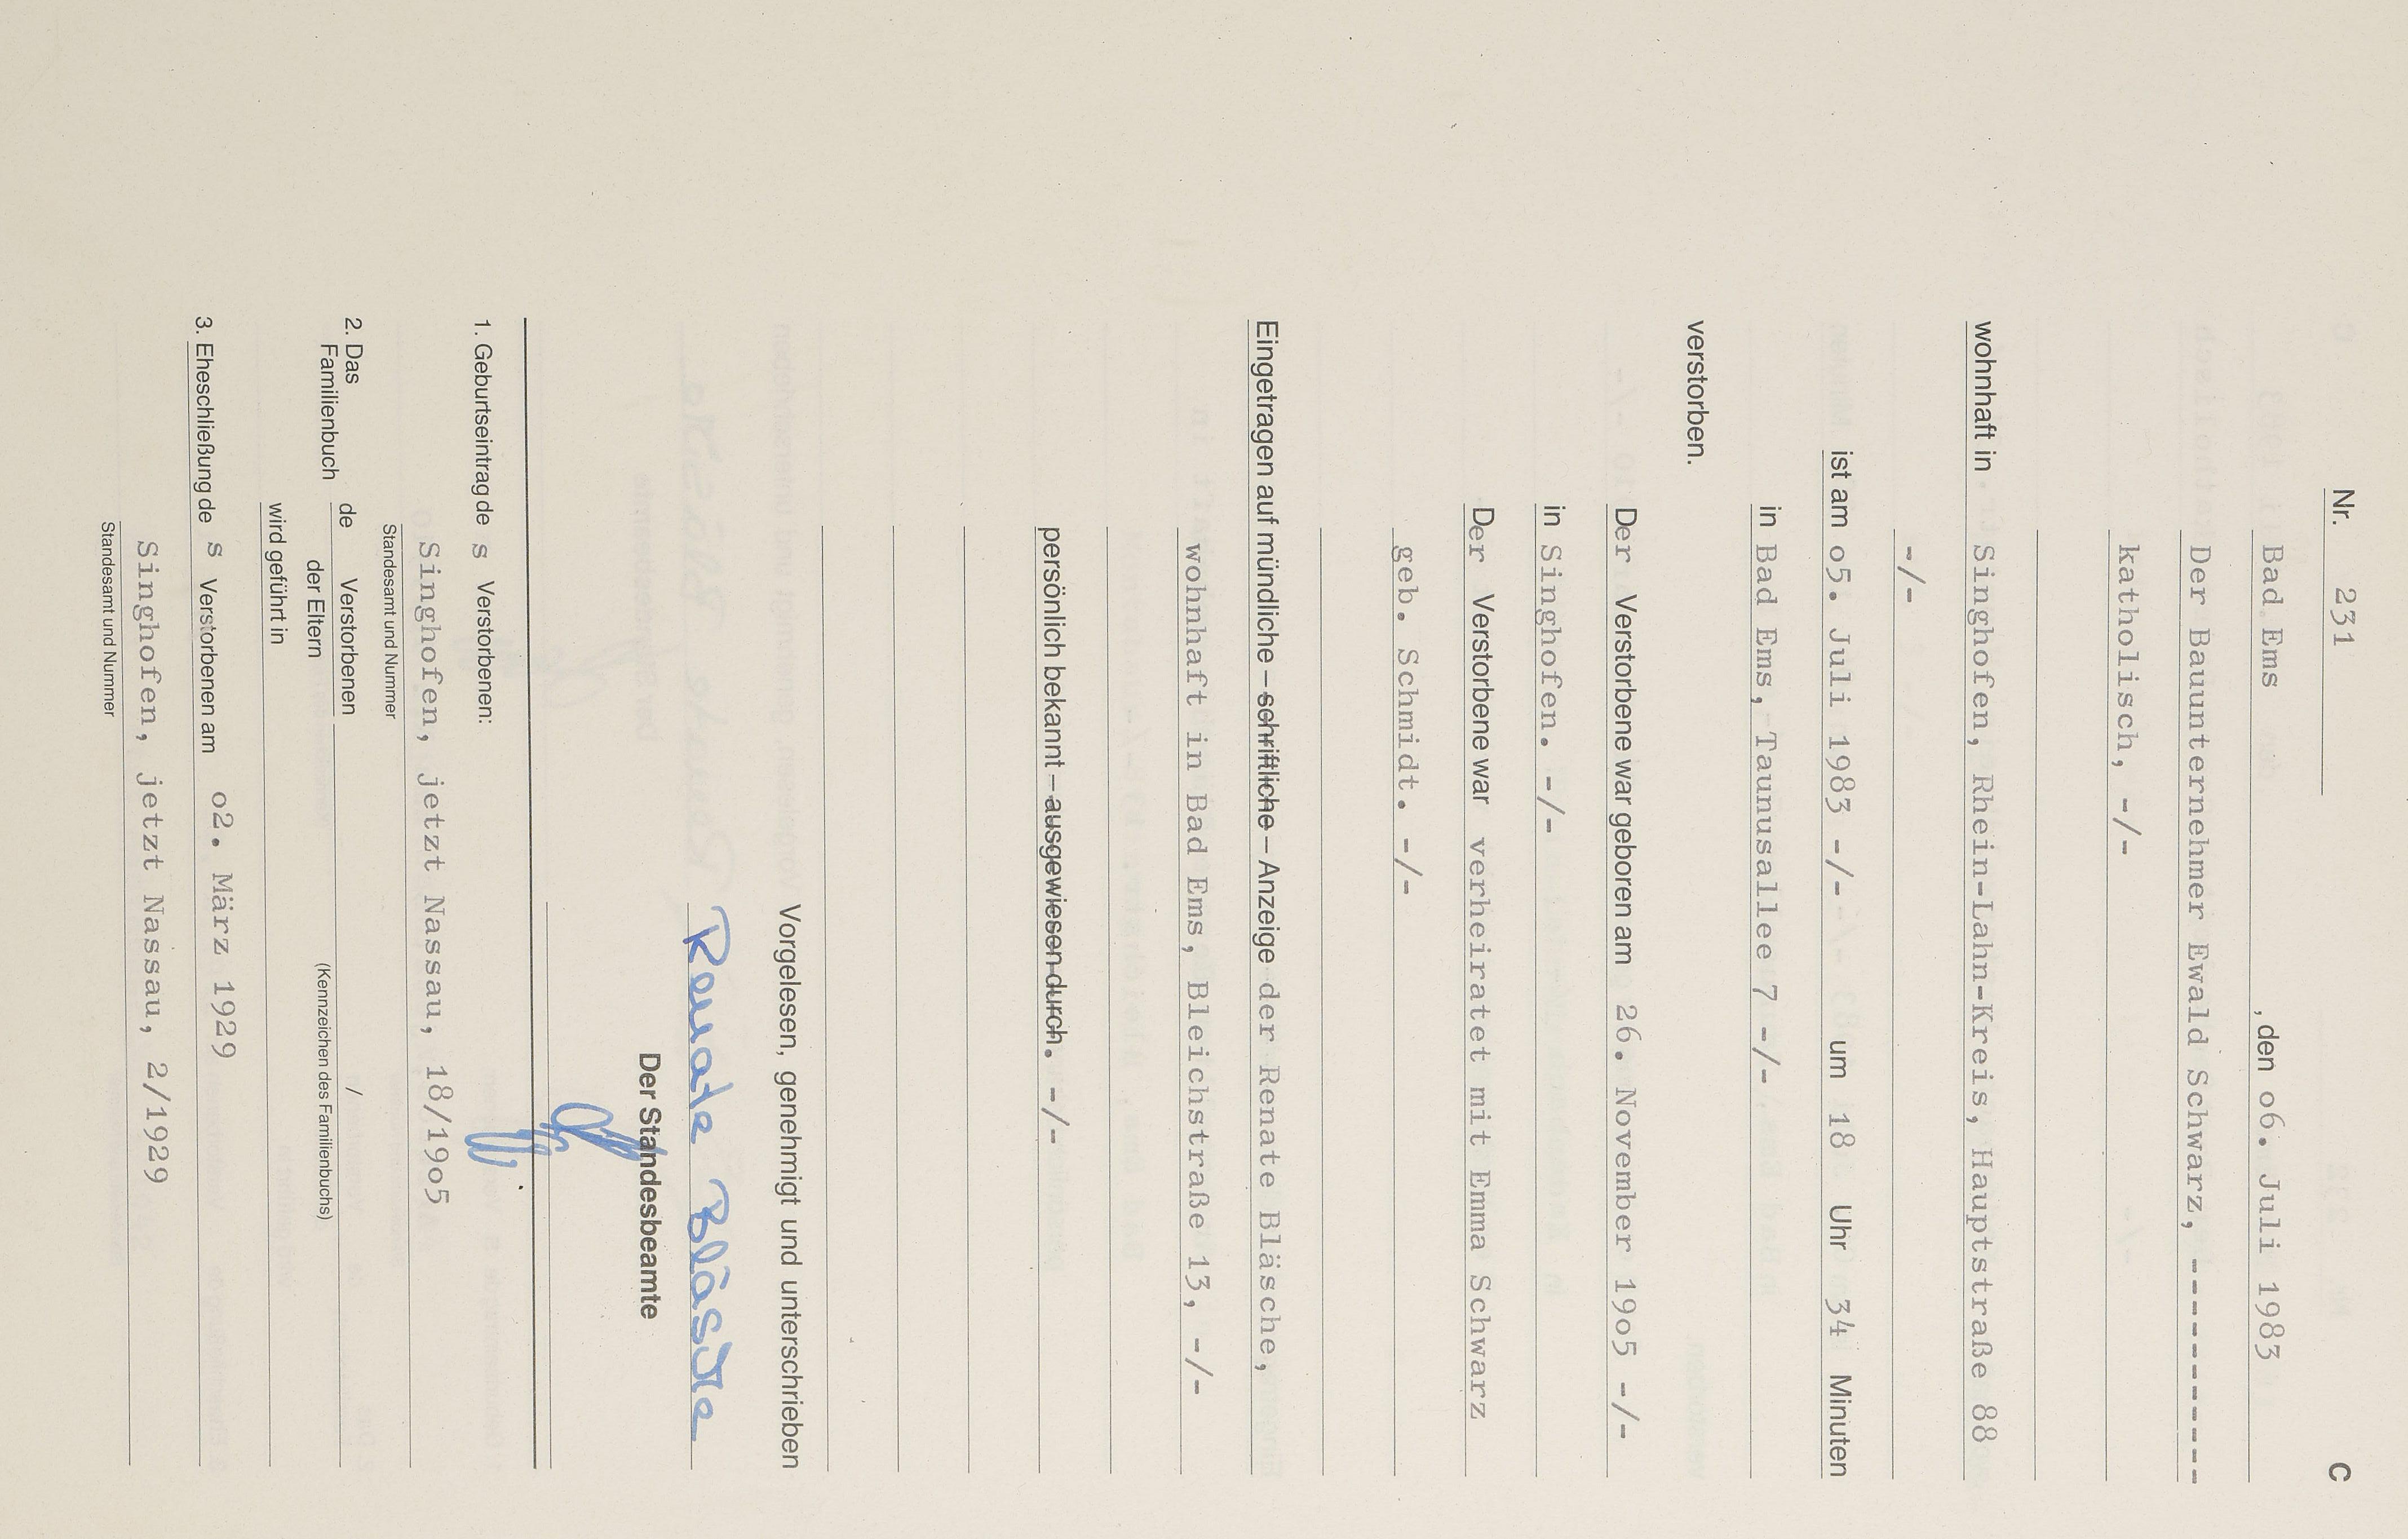 Nr. 231 C
Bad Ems , den o6. Juli 1983
Der Bauunternehmer Ewald Schwarz, ----------
katholisch, -/-
wohnhaft in Singhofen, Rhein-Lahn-Kreis, Hauptstraße 88
-/-
ist am o5. Juli 1983 -/- um 18 Uhr 34 Minuten
in Bad Ems, Taunusallee 7 -/-
verstorben.
Der Verstorbene war geboren am 26. November 19o5 -/-
in Singhofen. -/-
Der Verstorbene war verheiratet mit Emma Schwarz
geb. Schmidt. -/-
Eingetragen auf mündliche – schriftliche – Anzeige der Renate Bläsche,
wohnhaft in Bad Ems, Bleichstraße 13, -/-
persönlich bekannt – ausgewiesen durch. -/-
Vorgelesen, genehmigt und unterschrieben
Renate Bläsche
Der Standesbeamte
1. Geburtseintrag de s Verstorbenen:
Singhofen, jetzt Nassau, 18/19o5
Standesamt und Nummer
2. Das Familienbuch de Verstorbenen /
der Eltern (Kennzeichen des Familienbuchs)
wird geführt in
3. Eheschließung de s Verstorbenen am o2. März 1929
Singhofen, jetzt Nassau, 2/1929
Standesamt und Nummer